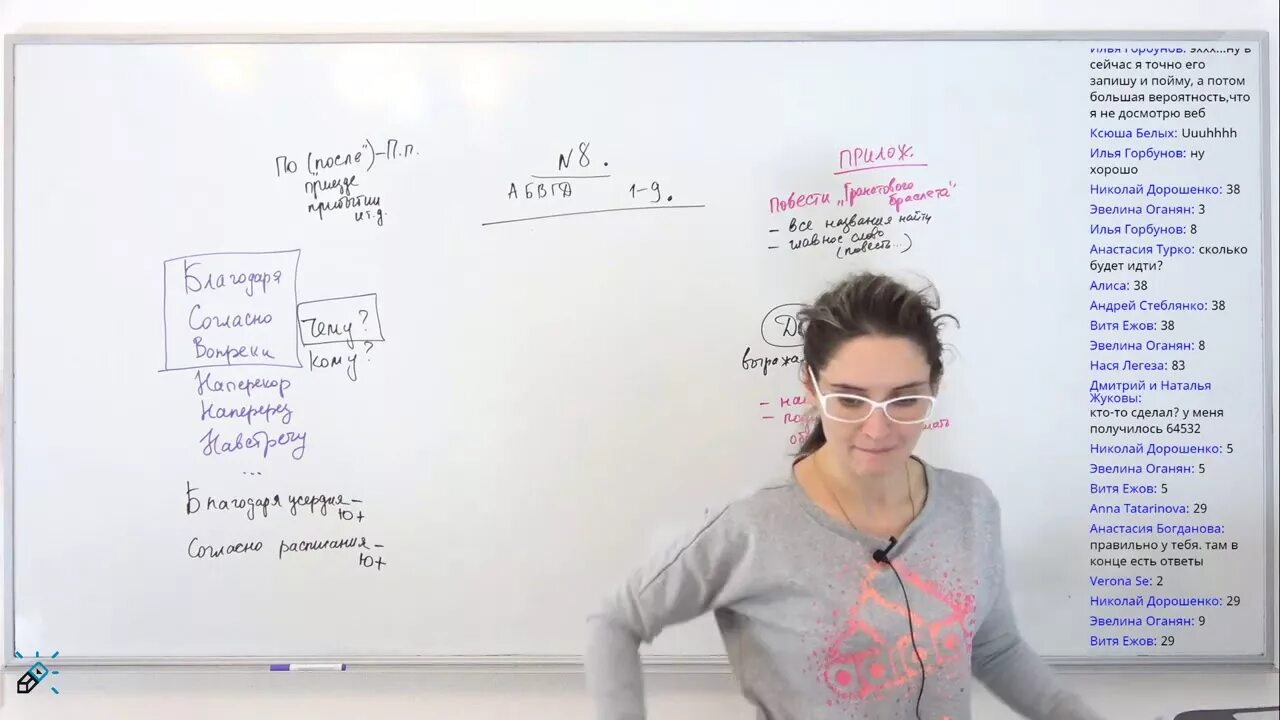 По („после")–П.п.
приезде
прибытии
и т.д.
Благодаря
Согласно
Вопреки
Чему?
Кому?
Наперекор
Наперерез
Навстречу
...
Благодаря усердия–
ю+
Согласно расписания–
ю+
N8.
АБВГД 1–9.
ПРИЛОЖ.
Повести „Гранатового
браслета"
– все названия найти
– главное слово
(повесть...)
выража
adidas
Илья Горбунов: эххх...ну в
сейчас я точно его
запишу и пойму, а потом
большая вероятность,что
я не досмотрю веб
Ксюша Белых: Uuuhhhh
Илья Горбунов: ну
хорошо
Николай Дорошенко: 38
Эвелина Оганян: 3
Илья Горбунов: 8
Анастасия Турко: сколько
будет идти?
Алиса: 38
Андрей Стеблянко: 38
Витя Ежов: 38
Эвелина Оганян: 8
Нася Легеза: 83
Дмитрий и Наталья
Жуковы:
кто-то сделал? у меня
получилось 64532
Николай Дорошенко: 5
Эвелина Оганян: 5
Витя Ежов: 5
Anna Tatarinova: 29
Анастасия Богданова:
правильно у тебя. там в
конце есть ответы
Verona Se: 2
Николай Дорошенко: 29
Эвелина Оганян: 9
Витя Ежов: 29